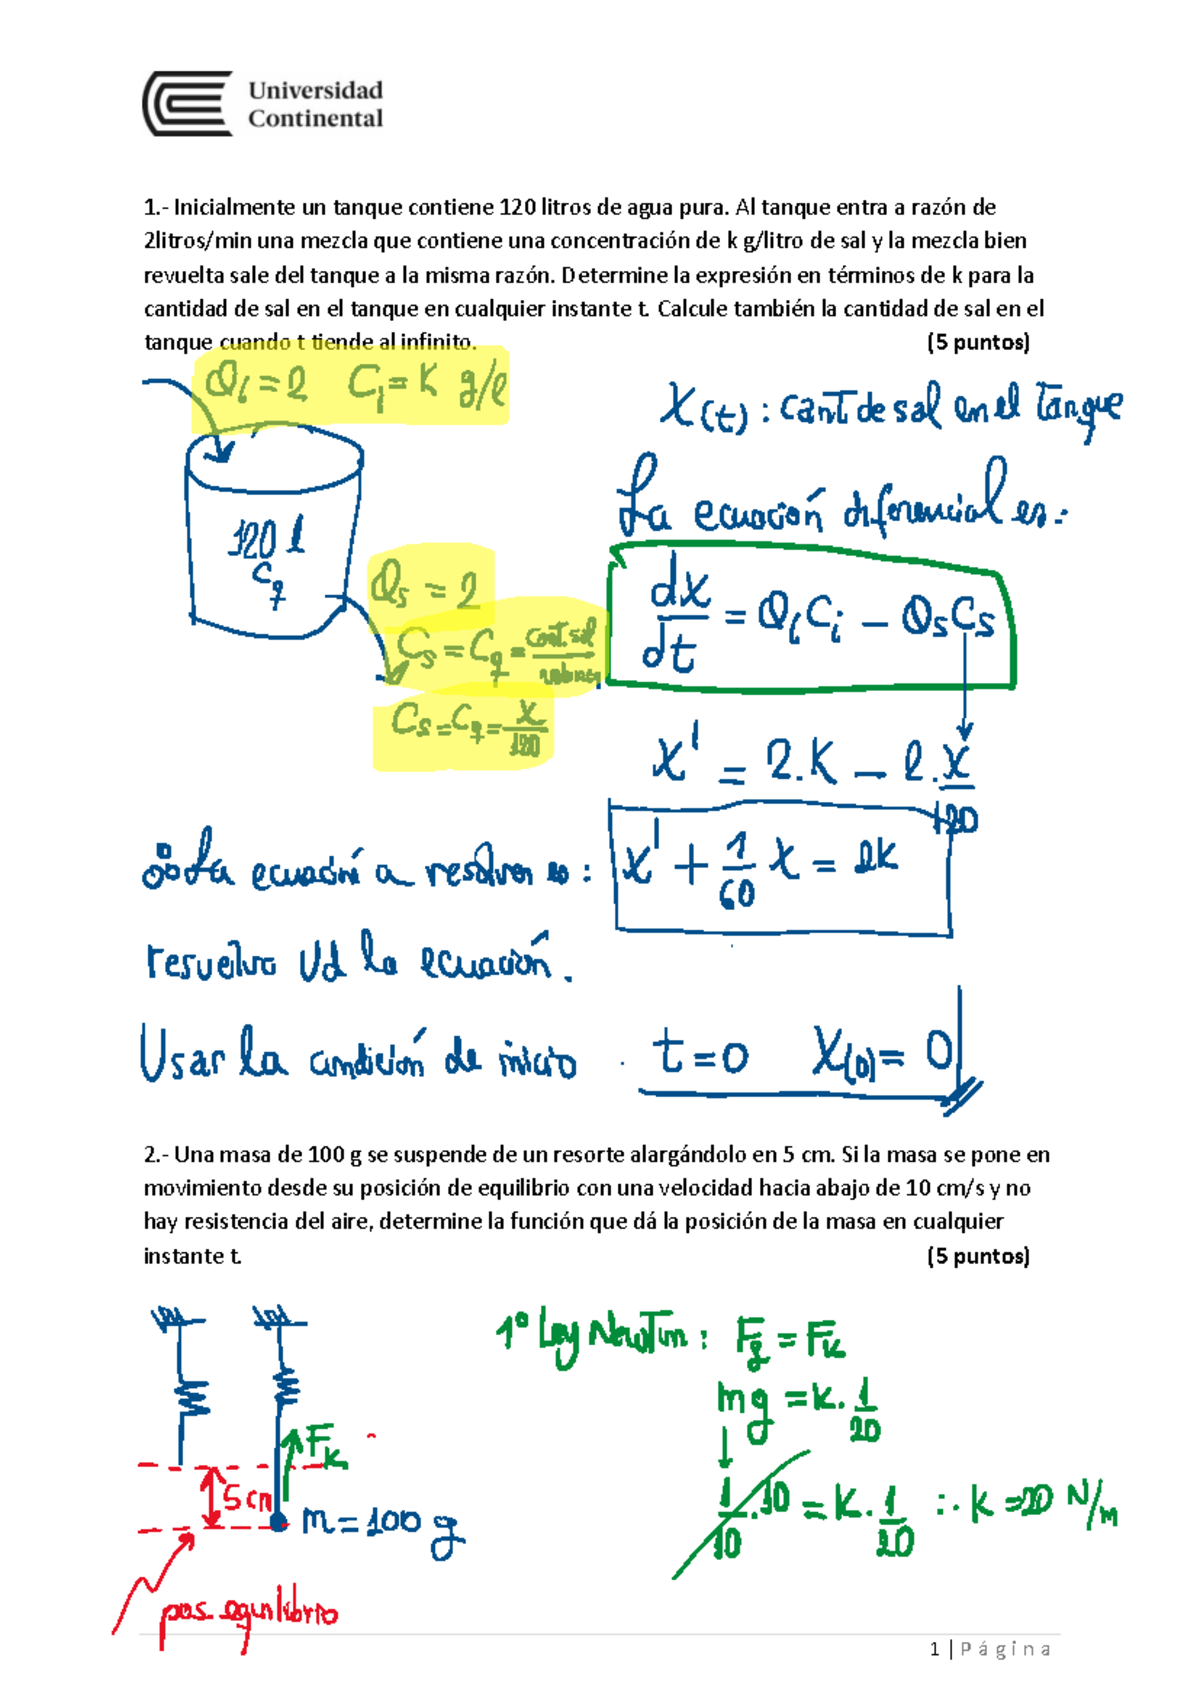 Universidad
Continental
1.- Inicialmente un tanque contiene 120 litros de agua pura. Al tanque entra a razón de
2litros/min una mezcla que contiene una concentración de k g/litro de sal y la mezcla bien
revuelta sale del tanque a la misma razón. Determine la expresión en términos de k para la
cantidad de sal en el tanque en cualquier instante t. Calcule también la cantidad de sal en el
tanque cuando t tiende al infinito. (5 puntos)
Qi = 2 Ci = K g/l
X(t) : cant de sal en el Tanque
La ecuación diferencial es:
120 l
Cq
Qs = 2
dx/dt = QiCi - QsCs
Cs = Cq = cant sal/volumen
Cs = Cq = x/120
x' = 2.K - 2.x/120
La ecuación a resolver es: x' + 1/60 x = 2k
resuelva Ud la ecuación.
Usar la condición de inicio . t = 0 X(0) = 0
2.- Una masa de 100 g se suspende de un resorte alargándolo en 5 cm. Si la masa se pone en
movimiento desde su posición de equilibrio con una velocidad hacia abajo de 10 cm/s y no
hay resistencia del aire, determine la función que dá la posición de la masa en cualquier
instante t. (5 puntos)
1º Ley Newton : Fg = Fk
mg = k. 1/20
Fk
5 cm
m = 100 g
1/10 . 10 = k. 1/20 ∴ k = 20 N/m
pos. equilibrio
1 | Página